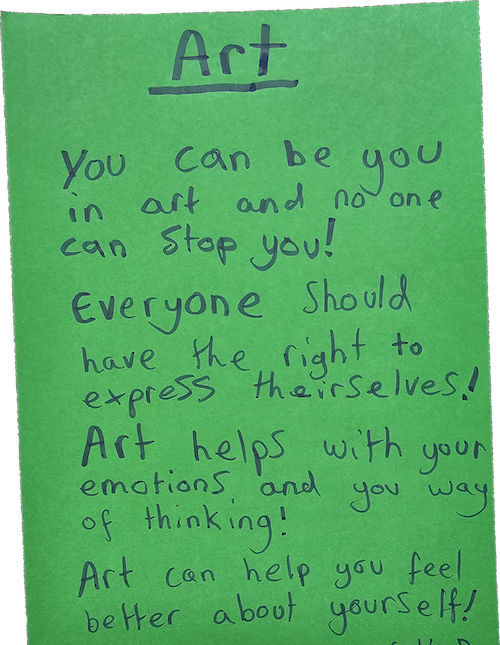 Art
You can be you
in art and no one
can stop you!
Everyone should
have the right to
express theirselves!
Art helps with your
emotions and you way
of thinking!
Art can help you feel
better about yourself!